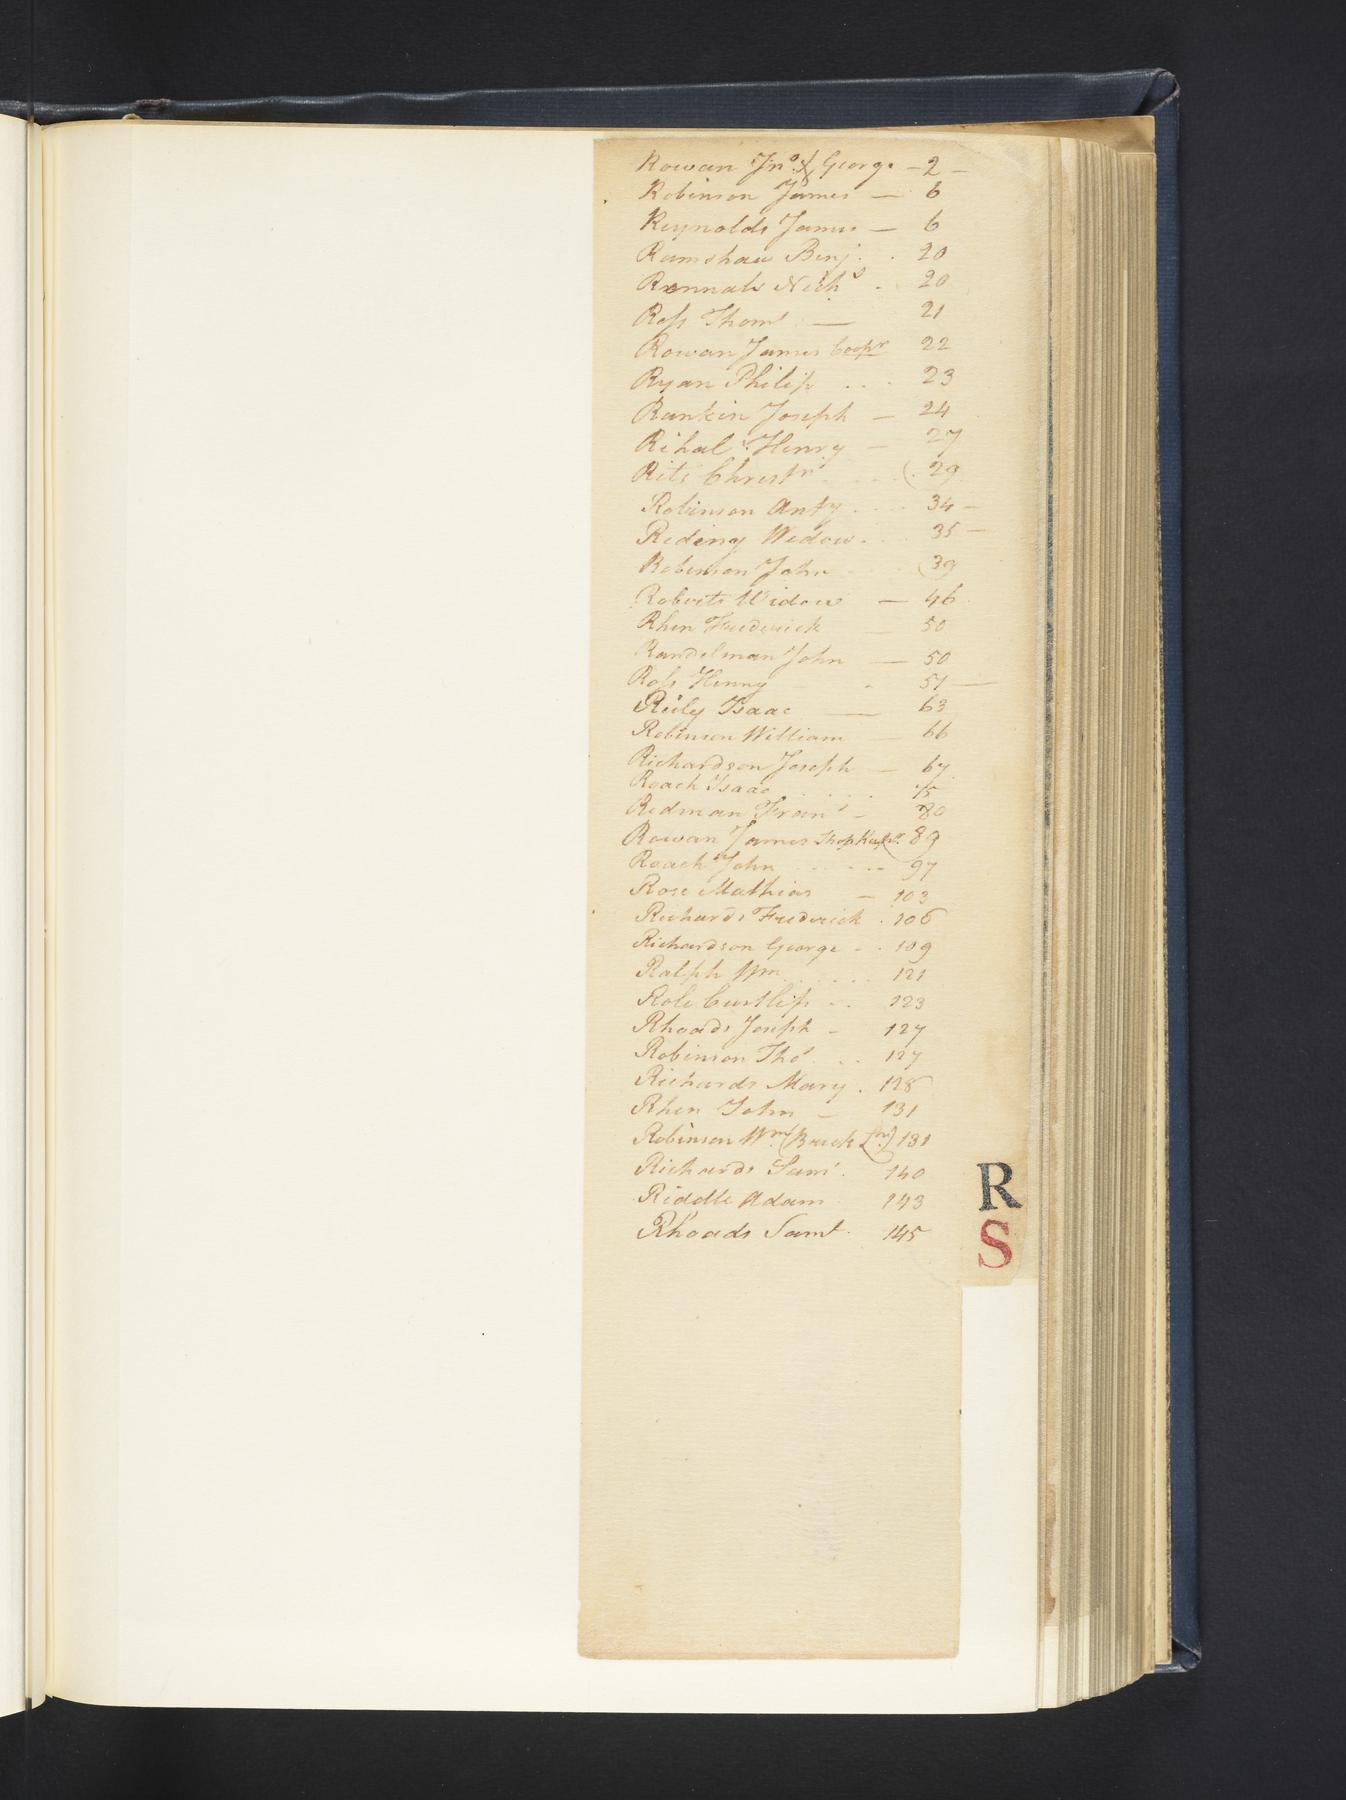 Rowan Jno. & George - 2 -
Robinson James — 6
Reynolds James — 6
Ramshaw Benj. . 20
Rennals Nichs . 20
Ross Thoms — 21
Rowan James Coopr 22
Ryan Philip . . . 23
Rankin Joseph — 24
Rihal Henry — 27
Rits Christr . . . . 29
Robinson Anty . . . . 34 -
Riding Widow . . . 35 -
Robinson John . . . 39
Roberts Widow — 46
Rhen Frederick — 50
Randelman John — 50
Ross Henny - 51 —
Reily Isaac — 63
Robinson William — 66
Richardson Joseph — 67
Roach Isaac . . . . 75
Redman Frans - 80
Rowan James Shop Keepr. 89
Roach John . . . . . . 97
Rose Mathias — 103
Richards Frederick . 106
Richardson George - . 109
Ralph Wm . . . . . 121
Role . . 123
Rhoads Joseph - 127
Robinson Thos . . . 127
Richards Mary . 128
Rhen John - 131
Robinson Wm. (Brick 131
Richards Saml . 140
Riddle Adam 143
Rhoads Saml . 145
R
S